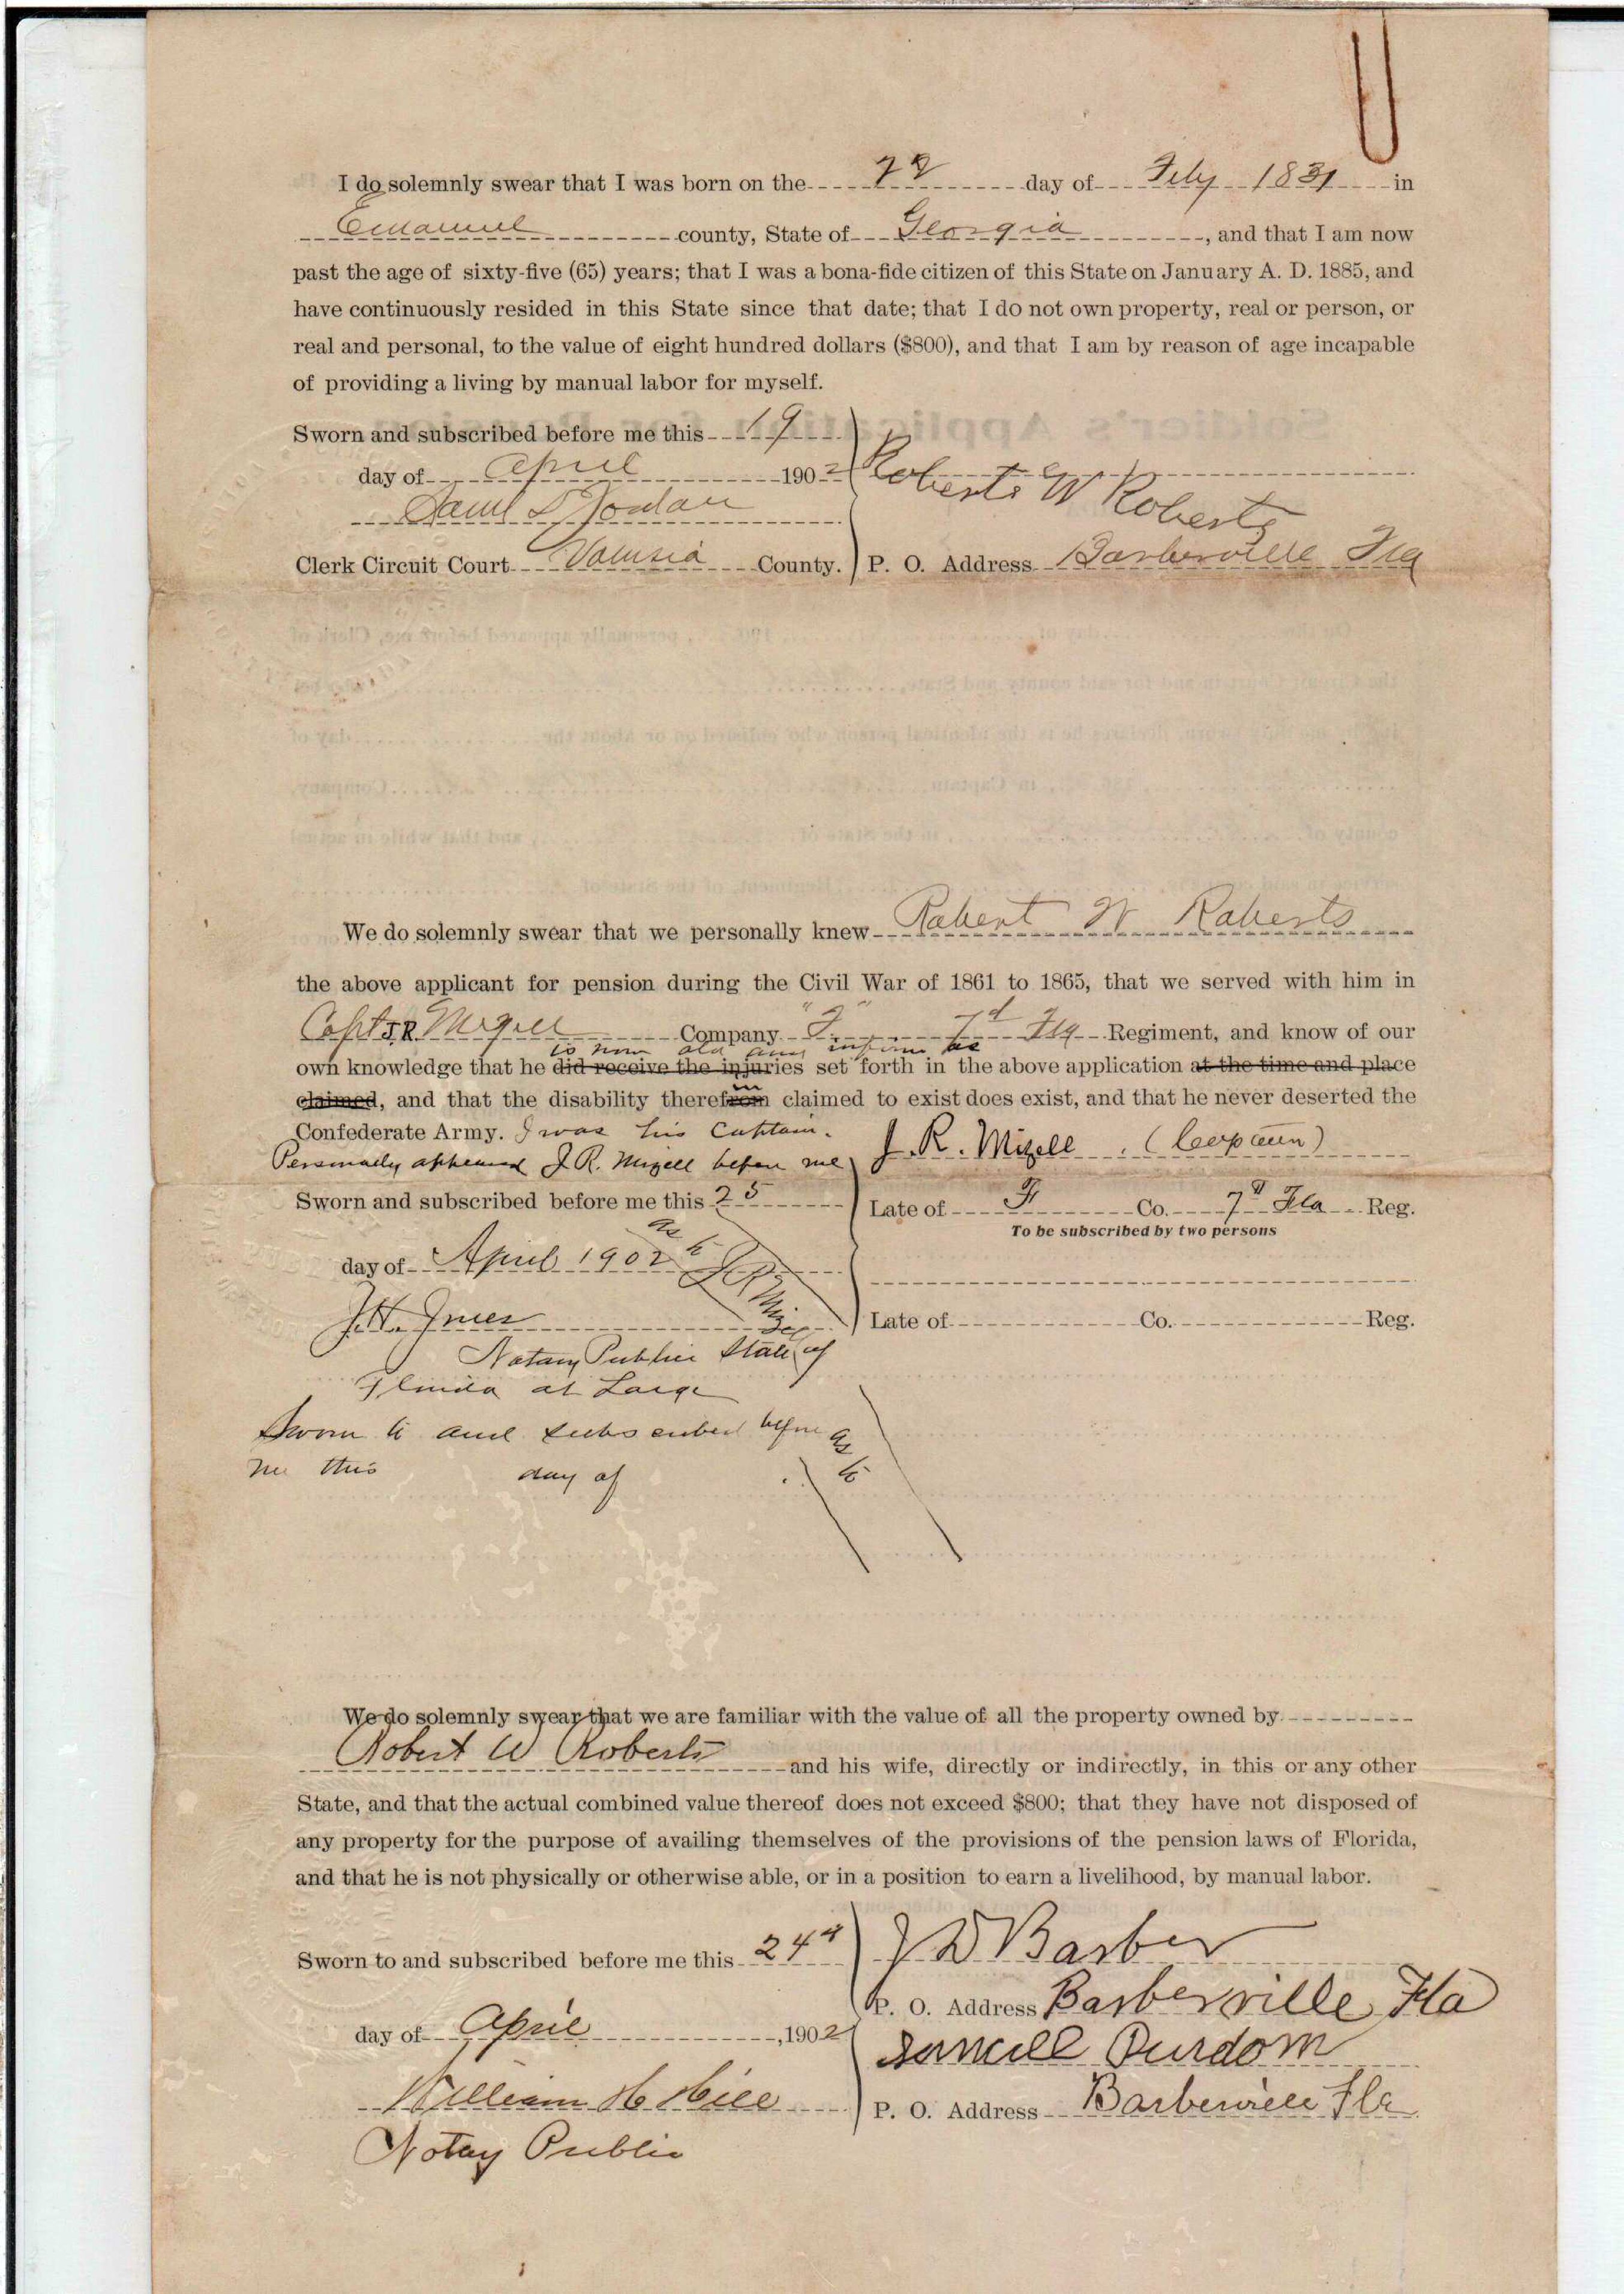 I do solemnly swear that I was born on the 22 day of Feby 1831 in
Emanuel county, State of Georgia, and that I am now
past the age of sixty-five (65) years; that I was a bona-fide citizen of this State on January A. D. 1885, and
have continuously resided in this State since that date; that I do not own property, real or person, or
real and personal, to the value of eight hundred dollars ($800), and that I am by reason of age incapable
of providing a living by manual labor for myself.
Sworn and subscribed before me this 19
day of April 1902
Roberts W Roberts
Saml D Jordan
Clerk Circuit Court Volusia County. P. O. Address Barberville Fla
We do solemnly swear that we personally knew Robert W Roberts
the above applicant for pension during the Civil War of 1861 to 1865, that we served with him in
Capt J.R. Mizell Company "F" 7d Fla Regiment, and know of our
is now old and infirm as
own knowledge that he did receive the injuries set forth in the above application at the time and place
in
claimed, and that the disability therefrom claimed to exist does exist, and that he never deserted the
Confederate Army. I was his Captain.
Personally appeared J. R. Mizell before me J. R. Mizell (Captain)
Sworn and subscribed before me this 25
Late of F Co. 7d Fla Reg.
To be subscribed by two persons
day of April 1902 as to J R Mizell
J. H. Jones
Late of Co. Reg.
Notary Public State of
Florida at Large
Sworn to and subscribed before as to
me this day of
We do solemnly swear that we are familiar with the value of all the property owned by
Robert W Roberts and his wife, directly or indirectly, in this or any other
State, and that the actual combined value thereof does not exceed $800; that they have not disposed of
any property for the purpose of availing themselves of the provisions of the pension laws of Florida,
and that he is not physically or otherwise able, or in a position to earn a livelihood, by manual labor.
Sworn to and subscribed before me this 24d J D Barber
P. O. Address Barberville Fla
day of April, 1902
Purdom
William H Hill P. O. Address Barberville Fla
Notay Public